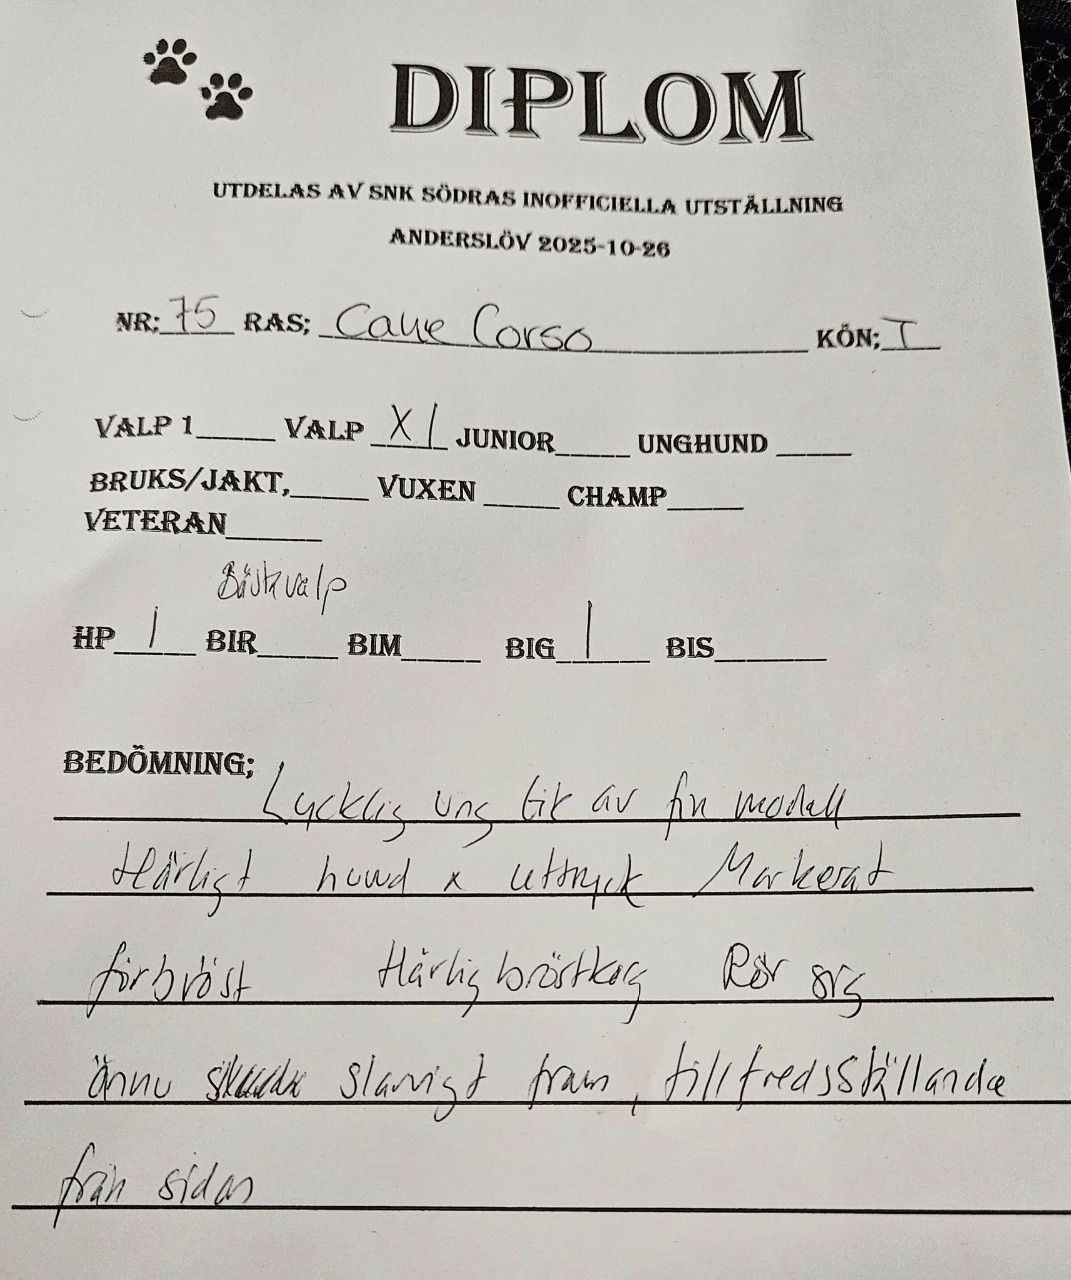 DIPLOM
UTDELAS AV SNK SÖDRAS INOFFICIELLA UTSTÄLLNING
ANDERSLÖV 2025-10-26
NR; 75 RAS; Cane Corso KÖN; T
VALP 1 VALP X 1 JUNIOR UNGHUND
BRUKS/JAKT, VUXEN CHAMP
VETERAN
Bästvalp
HP 1 BIR BIM BIG 1 BIS
BEDÖMNING;
Lycklig ung tik av fin modell
Härligt huvud x uttryck Markerat
förbröst Härlig bröstkorg Rör sig
ännu slarvigt fram, tillfredsställande
från sidan